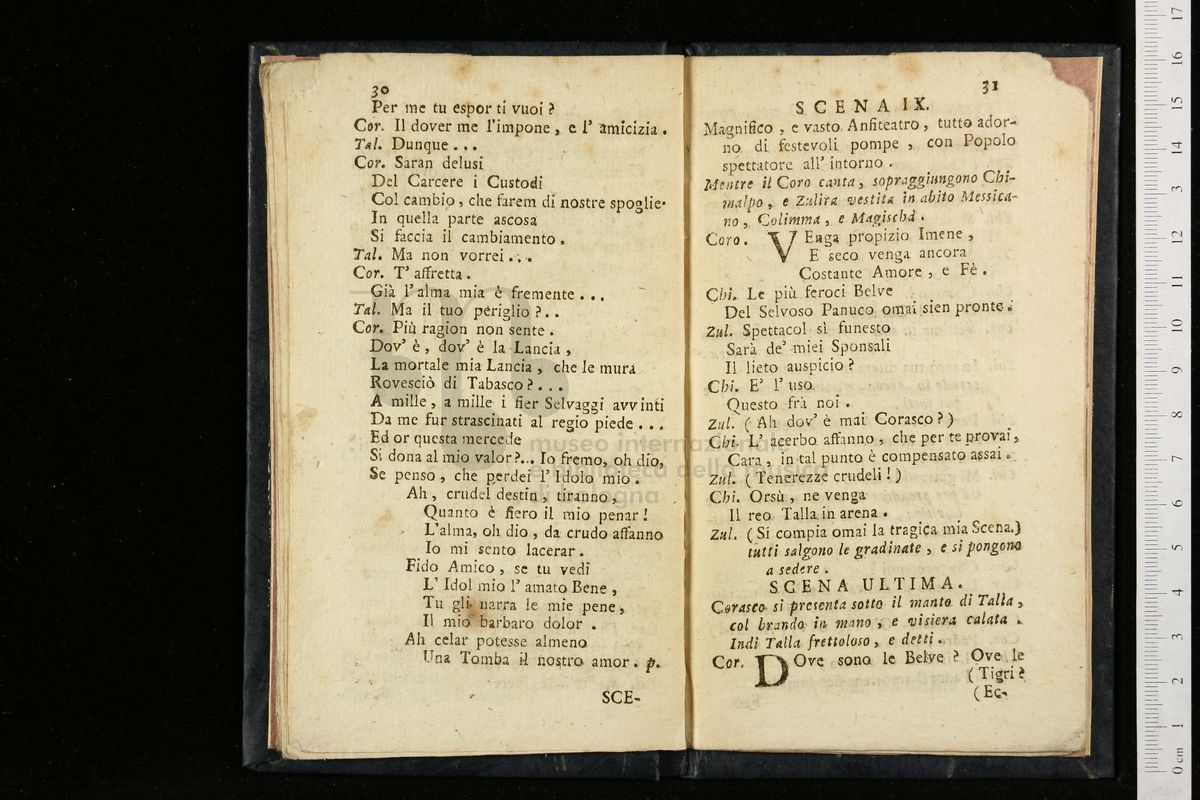 30
Per me tu espor ti vuoi ?
Cor. Il dover me l'impone, e l' amicizia.
Tal. Dunque...
Cor. Saran delusi
Del Carcere i Custodi
Col cambio, che farem di nostre spoglie.
In quella parte ascosa
Si faccia il cambiamento.
Tal. Ma non vorrei...
Cor. T' affretta.
Già l'alma mia è fremente...
Tal. Ma il tuo periglio ?..
Cor. Più ragion non sente.
Dov' è, dov' è la Lancia,
La mortale mia Lancia, che le mura
Rovesciò di Tabasco ?...
A mille, a mille i fier Selvaggi avvinti
Da me fur strascinati al regio piede...
Ed or questa mercede
Si dona al mio valor ?... Io fremo, oh dio,
Se penso, che perdei l' Idolo mio.
Ah, crudel destin, tiranno,
Quanto è fiero il mio penar !
L'alma, oh dio, da crudo affanno
Io mi sento lacerar.
Fido Amico, se tu vedi
L' Idol mio l' amato Bene,
Tu gli narra le mie pene,
Il mio barbaro dolor.
Ah celar potesse almeno
Una Tomba il nostro amor. p.
SCE-
31
SCENA IX.
Magnifico, e vasto Anfiteatro, tutto ador-
no di festevoli pompe, con Popolo
spettatore all' intorno.
Mentre il Coro canta, sopraggiungono Chi-
malpo, e Zulira vestita in abito Messica-
no, Colimma, e Magiscbà.
Coro. VEnga propizio Imene,
E seco venga ancora
Costante Amore, e Fè.
Chi. Le più feroci Belve
Del Selvoso Panuco omai sien pronte.
Zul. Spettacol sì funesto
Sarà de' miei Sponsali
Il lieto auspicio ?
Chi. E' l' uso
Questo frà noi.
Zul. ( Ah dov' è mai Corasco ? )
Chi. L' acerbo affanno, che per te provai,
Cara, in tal punto è compensato assai.
Zul. ( Tenerezze crudeli ! )
Chi. Orsù, ne venga
Il reo Talla in arena.
Zul. ( Si compia omai la tragica mia Scena.)
tutti salgono le gradinate, e si pongono
a sedere.
SCENA ULTIMA.
Corasco si presenta sotto il manto di Talla,
col brando in mano, e visiera calata.
Indi Talla frettoloso, e detti.
Cor. DOve sono le Belve ? Ove le
( Tigri ?
( Ec-
museo internazionale
e biblioteca della musica
di bologna
0 cm 1 2 3 4 5 6 7 8 9 10 11 12 13 14 15 16 17